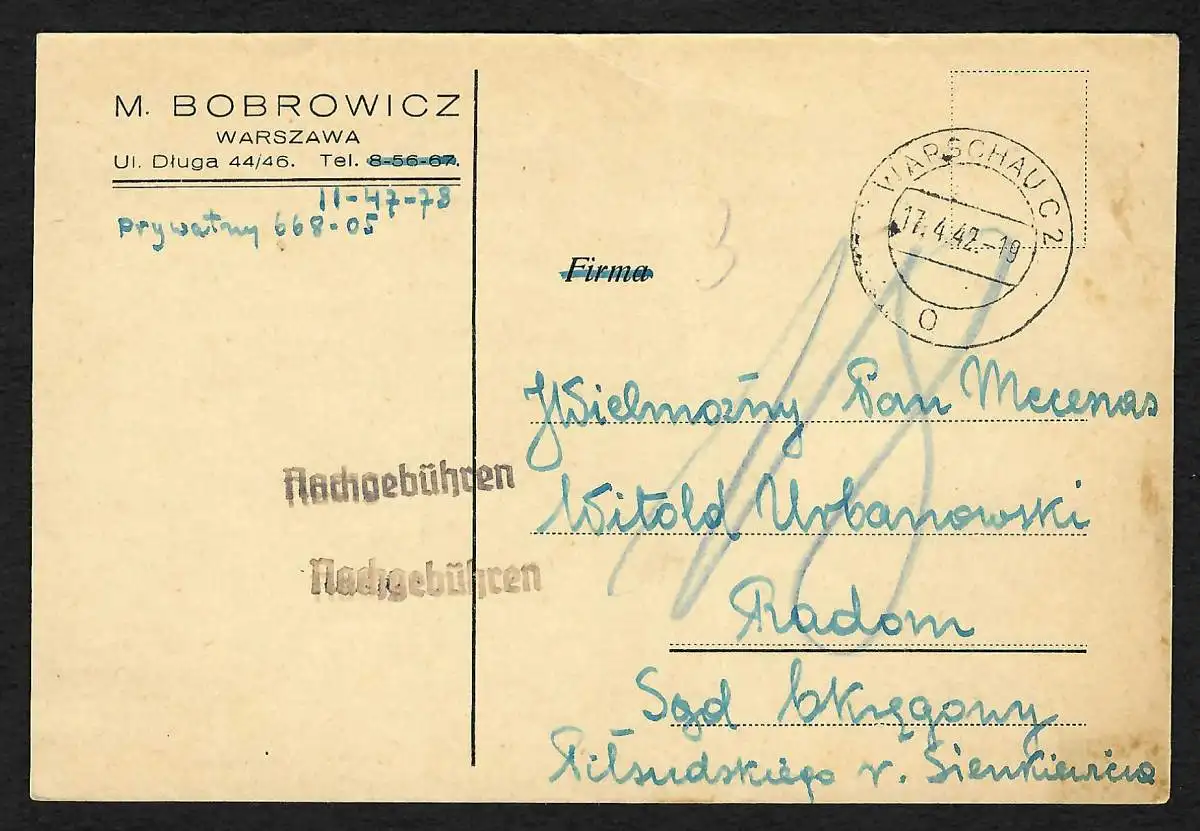 M. BOBROWICZ
WARSZAWA
Ul. Długa 44/46. Tel. 8-56-67.
11-47-78
prywatny 668-05
WARSCHAU C 2
17.4.42.-19
o
3
Firma
18
JWielmożny Pan Mecenas
Witold Urbanowski
Radom
Sąd Okręgowy
Piłsudskiego r. Sienkiewicza
Nachgebühren
Nachgebühren